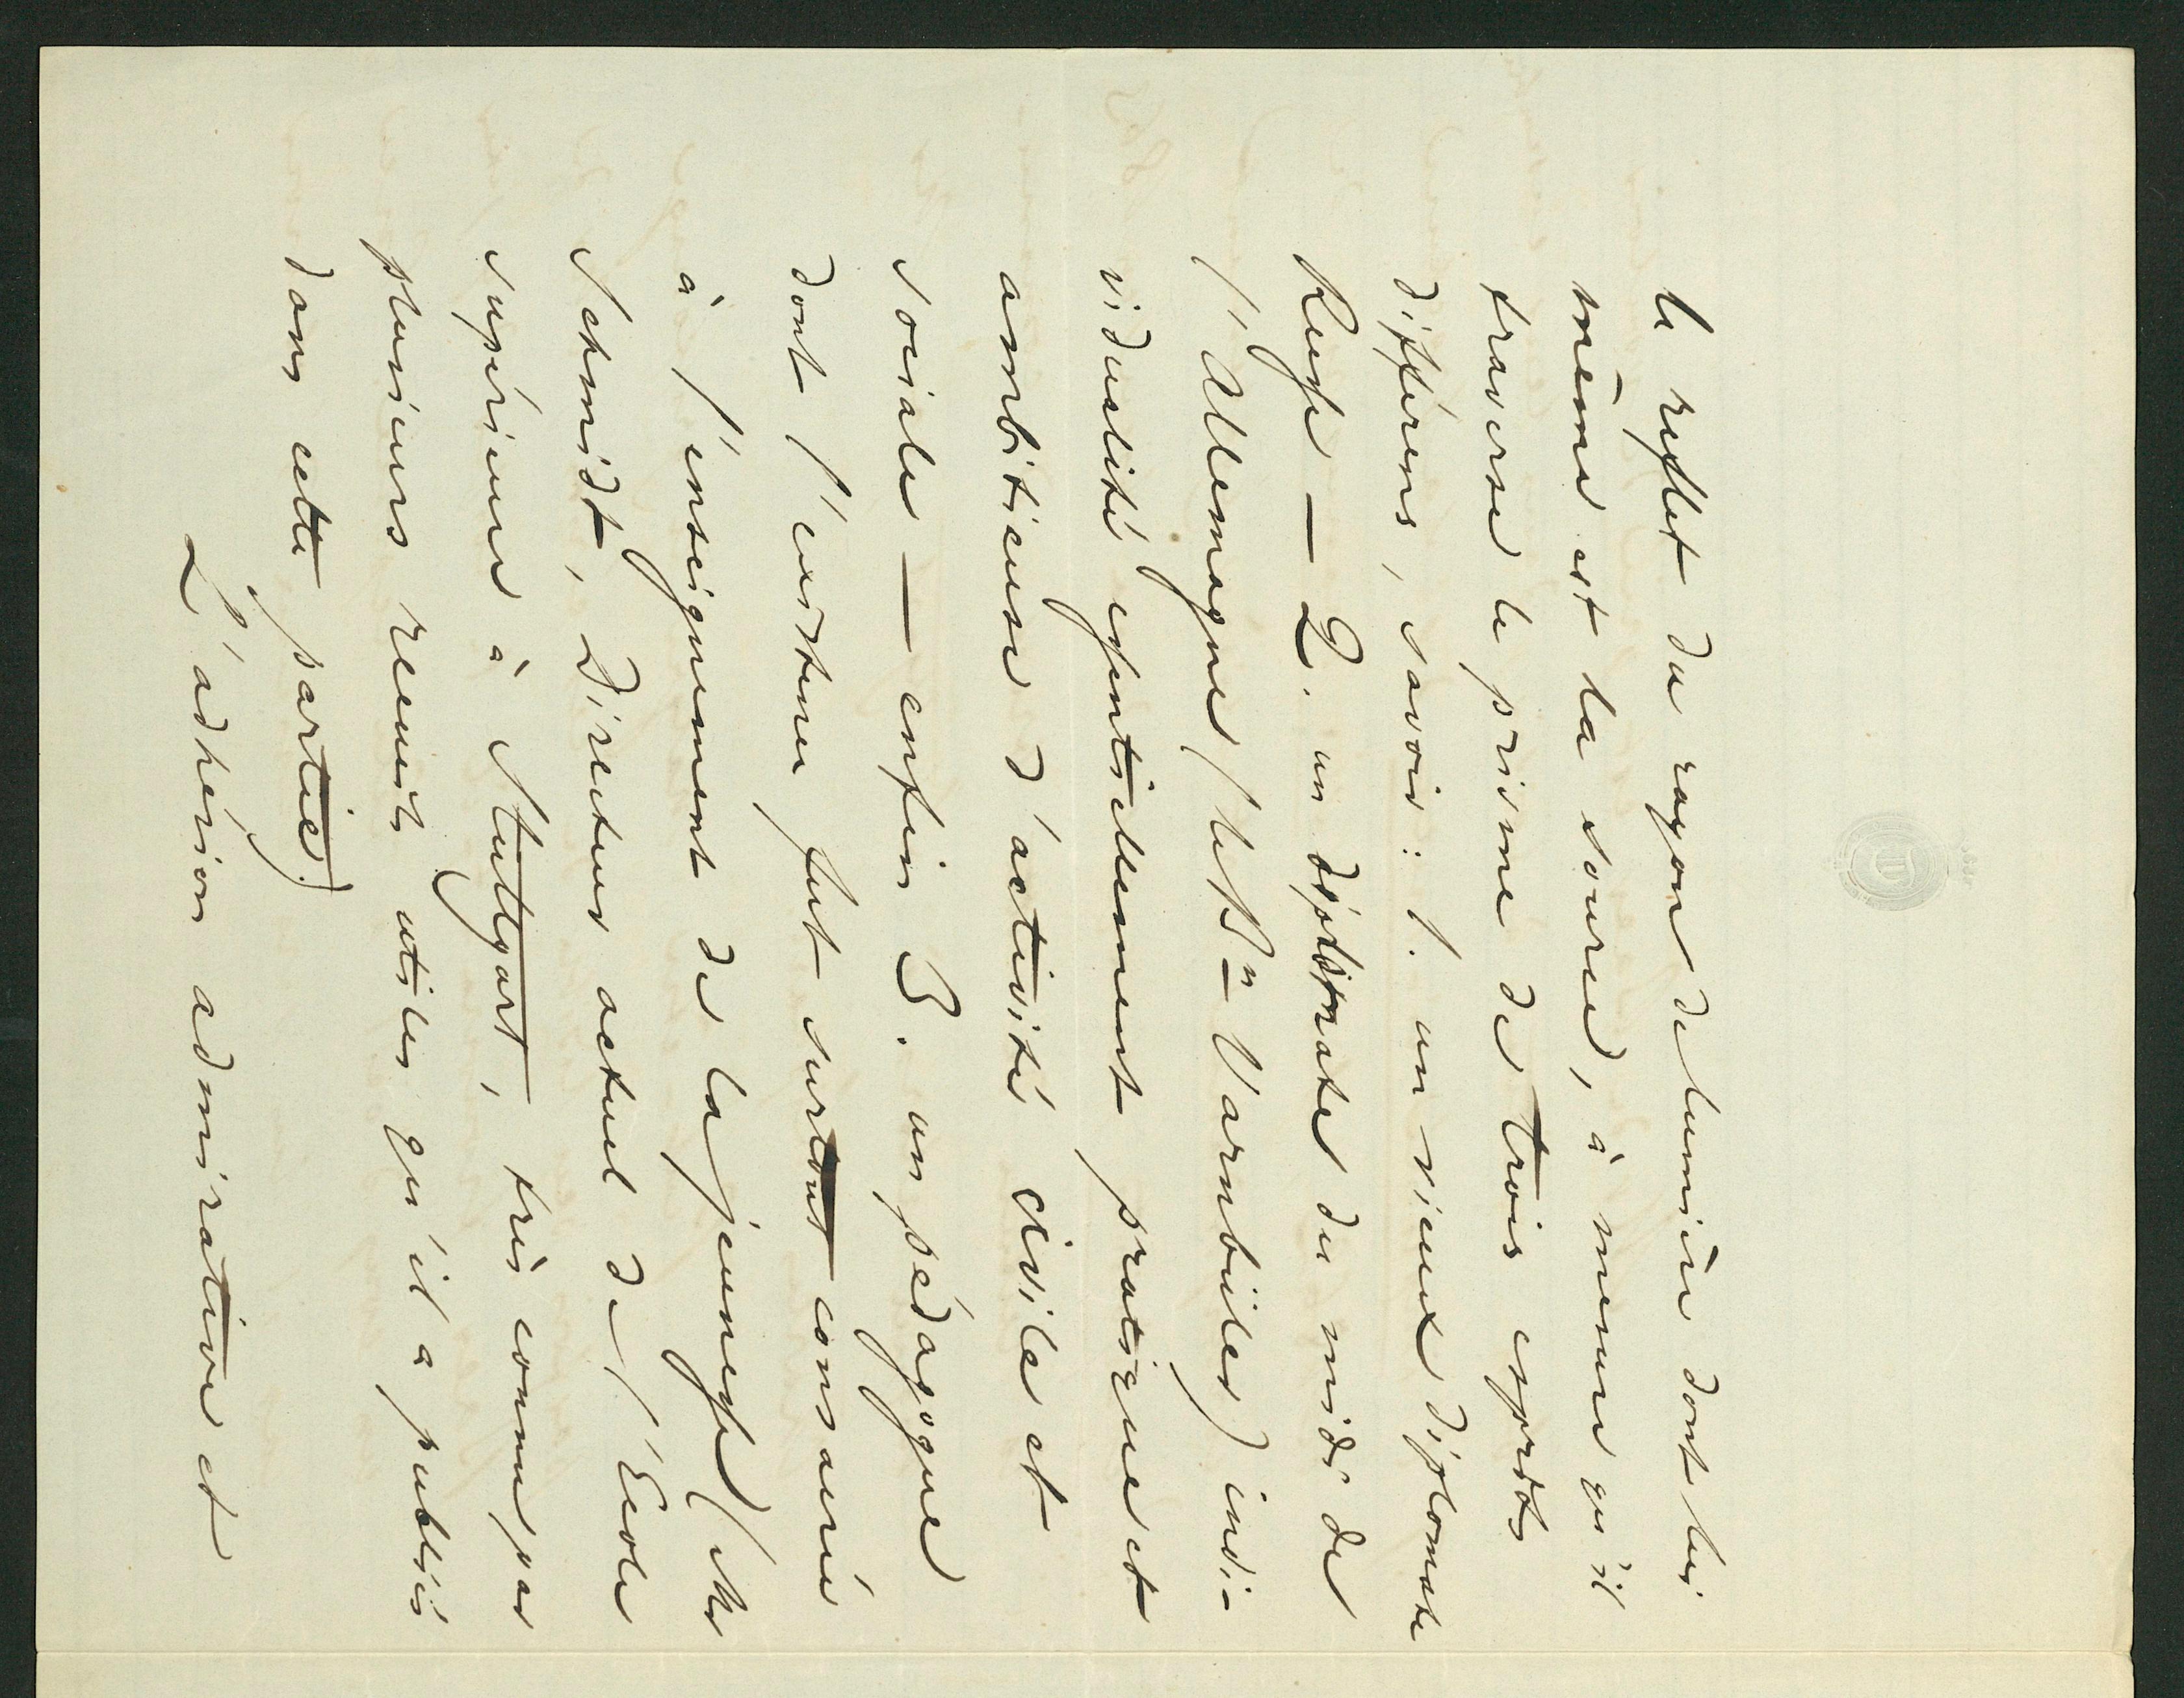 le reflet du rayon de lumière dont lui
même est la source, à mesure qu'il
traverse le prisme de trois esprits
différens, savoir: 1. un vieux diplomate
Russe — 2. un diplomate du midi de
l'Allemagne (le Bn Varnbüler) indi-
vidualité essentiellement pratique et
ambitieuse d'activité civile et
sociale — enfin 3. un pédagogue
dont l'existence fut surtout consacrée
à l'enseignement de la jeunesse (Mr
Schmidt, Directeur actuel de l'École
supérieure à Stuttgart, très connu par
plusieurs recueils utiles qu'il a publiés
dans cette partie.)
L'adhésion admirative et